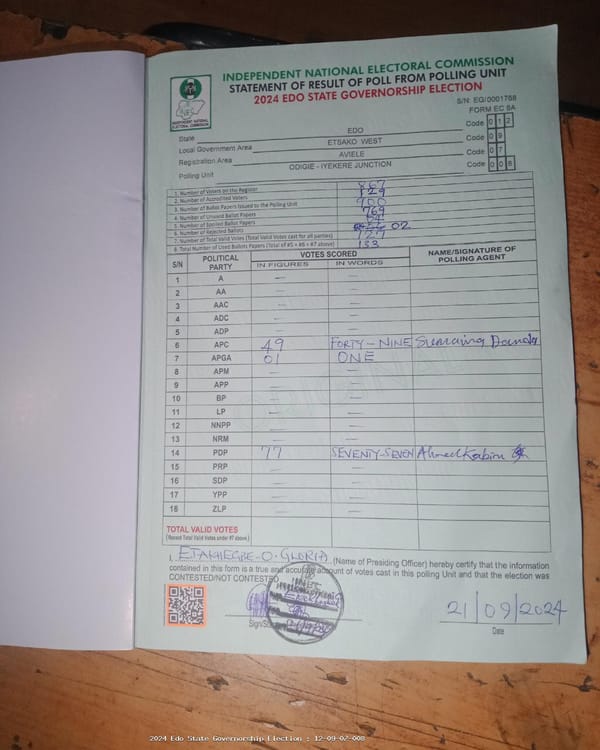 INDEPENDENT NATIONAL ELECTORAL COMMISSION
STATEMENT OF RESULT OF POLL FROM POLLING UNIT
2024 EDO STATE GOVERNORSHIP ELECTION
S/N: EG/0001768
FORM EC 8A
INEC
INDEPENDENT NATIONAL ELECTORAL COMMISSION
State EDO Code 012
Local Government Area ETSAKO WEST Code 09
Registration Area AVIELE Code 07
Polling Unit ODIGIE - IYEKERE JUNCTION Code 008
1. Number of Voters on the Register
2. Number of Accredited Voters 129
3. Number of Ballot Papers Issued to the Polling Unit 900
4. Number of Unused Ballot Papers 769
5. Number of Spoiled Ballot Papers
6. Number of Rejected Ballots 02
7. Number of Total Valid Votes (Total Valid Votes cast for all parties) 127
8. Total Number of Used Ballots Papers (Total of #5 + #6 + #7 above) 133
S/N POLITICAL PARTY VOTES SCORED NAME/SIGNATURE OF POLLING AGENT
IN FIGURES IN WORDS
1 A — —
2 AA — —
3 AAC — —
4 ADC — —
5 ADP — —
6 APC 49 FORTY-NINE
7 APGA 01 ONE
8 APM — —
9 APP — —
10 BP — —
11 LP — —
12 NNPP — —
13 NRM — —
14 PDP 77 SEVENTY-SEVEN Ahmed Kabiru
15 PRP — —
16 SDP — —
17 YPP — —
18 ZLP — —
TOTAL VALID VOTES
(Record Total Valid Votes under #7 above)
I, O. GLORIA (Name of Presiding Officer) hereby certify that the information
contained in this form is a true and accurate account of votes cast in this polling Unit and that the election was
CONTESTED/NOT CONTESTED
INEC
21/09/2024
Date
2024 Edo State Governorship Election : 12-09-07-008